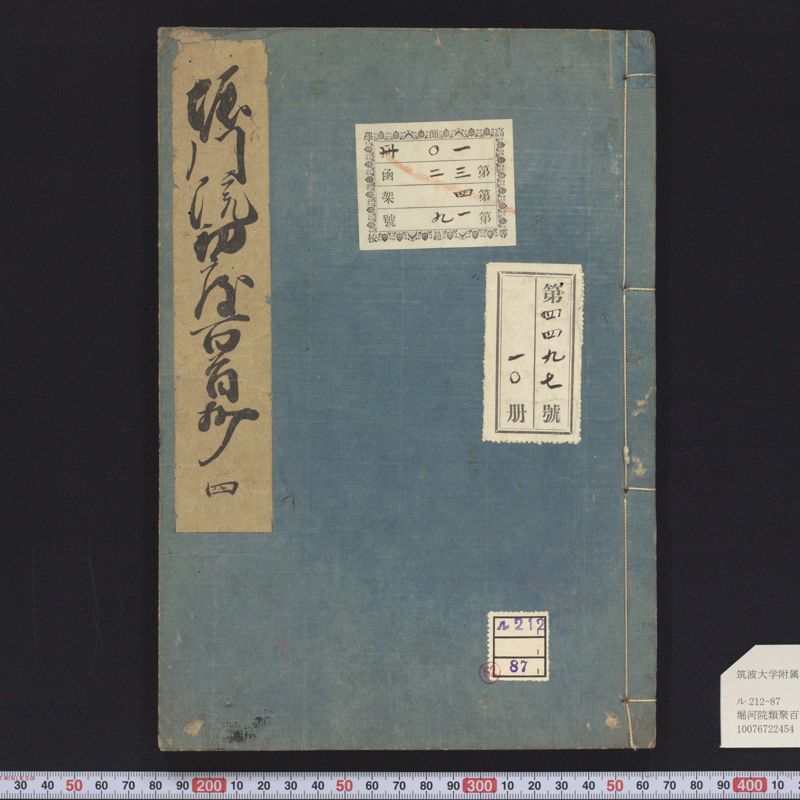 堀川院初度百首抄 四
第三二函
第四架
第一九號
一〇冊
第四四九七號
一〇册
ル212
87
52
筑波大学附属
ル 212-87
堀河院類聚百
10076722454
STAINLESS
30 40 50 60 70 80 90 200 10 20 30 40 50 60 70 80 90 300 10 20 30 40 50 60 70 80 90 400 10